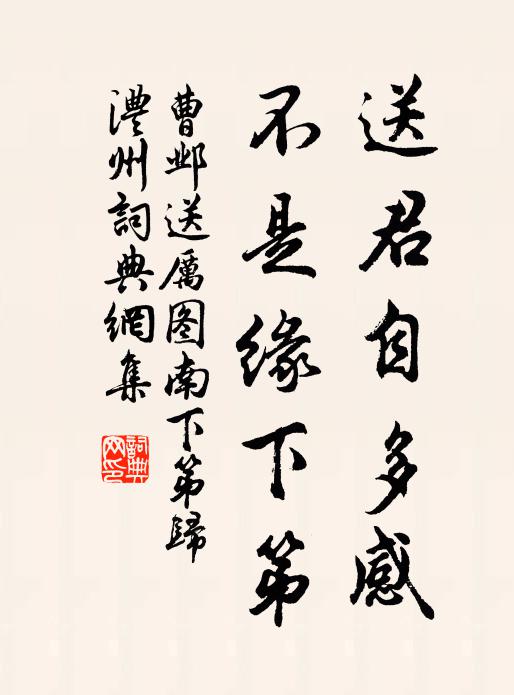 送君自多感
不是缘下第
曹邺送厲图南下第歸
澧州詞典網集
詞典網印